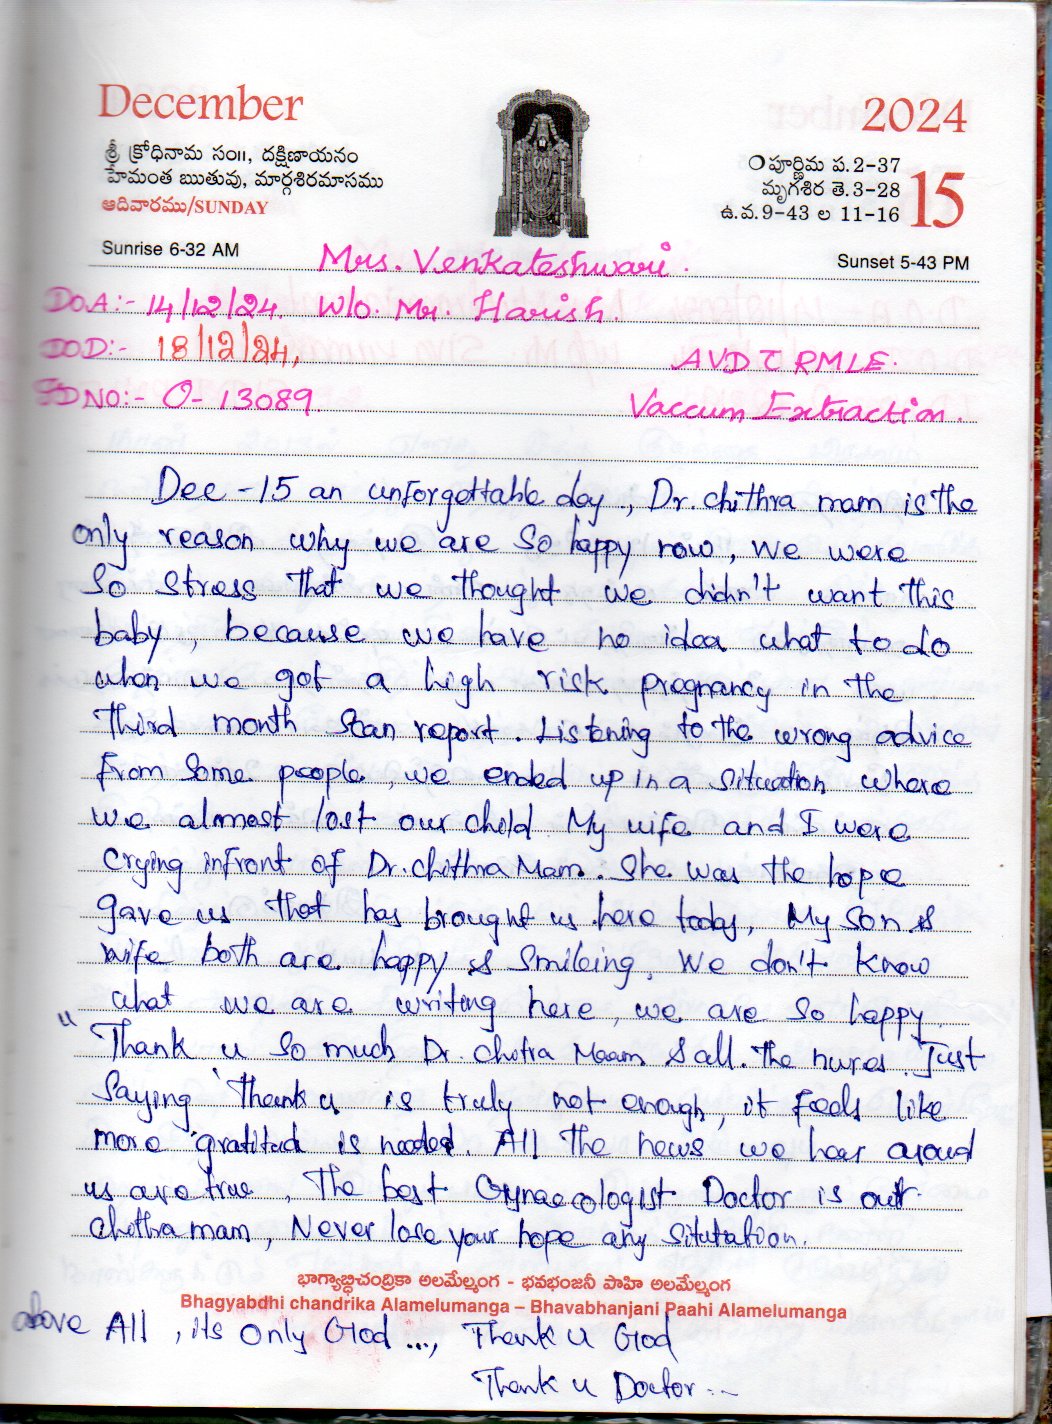 December
2024
శ్రీ క్రోధినామ సం॥, దక్షిణాయనం
హేమంత ఋతువు, మార్గశిరమాసము
ఆదివారము/SUNDAY
పూర్ణిమ ప.2-37
మృగశిర తె.3-28
ఉ.వ.9-43 ల 11-16
15
Sunrise 6-32 AM
Sunset 5-43 PM
Mrs. Venkateshwari.
D.O.A:- 14/12/24. W/o. Mr. Harish.
DOD:- 18/12/24,
AVD C RMLE.
IPD NO:- O-13089
Vaccum Extraction.
Dec -15 an unforgettable day., Dr. chithra mam is the
only reason why we are so happy now, we were
So stress that we thought we didn't want this
baby, because we have no idea what to do
when we got a high risk pregnancy in the
third month scan report. Listening to the wrong advice
from some people, we ended up in a situation where
we almost lost our child. My wife and I were
crying infront of Dr. chithra Mam. She was the hope
gave us that has brought us here today, My son &
wife both are happy & smileing. We don't know
what we are writing here, we are so happy.
" Thank u so much Dr. chitra Maam & all. the nures. Just
Saying 'thank u is truly not enough, it feels like
more gratitud is needed. All the news we hear aroud
us are true, The best Gynaecologist Doctor is our
chithra mam, Never lose your hope any situtation.
భాగ్యాబ్ధిచంద్రికా అలమేల్మంగ - భవభంజనీ పాహి అలమేల్మంగ
Bhagyabdhi chandrika Alamelumanga – Bhavabhanjani Paahi Alamelumanga
above All, its only God ..., Thank u God
Thank u Doctor ...